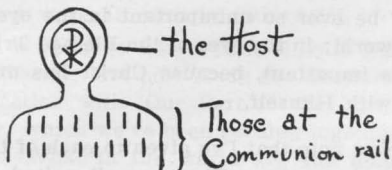 the Host
Those at the
Communion rail